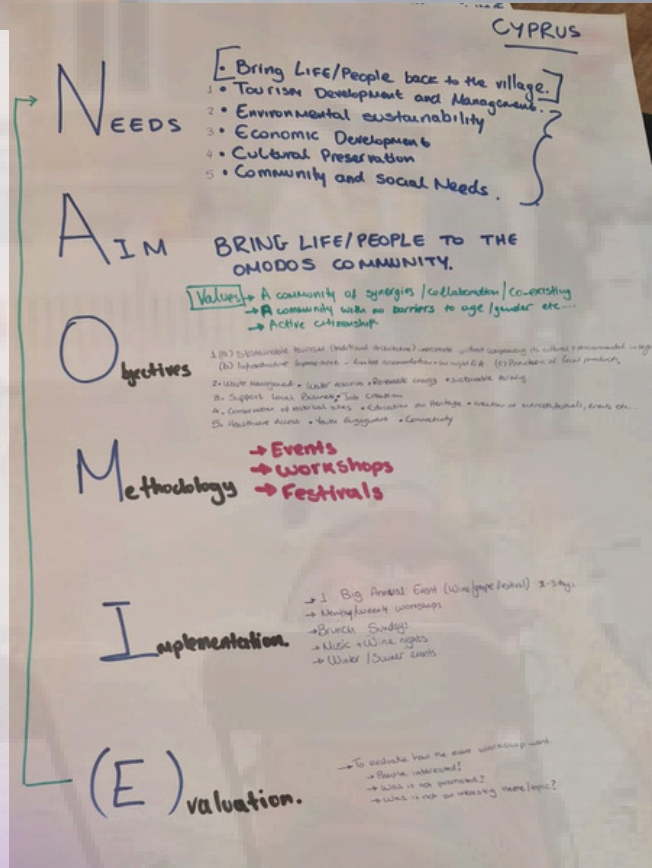 CYPRUS
NEEDS
[• Bring LIFE/People back to the village.]
1 • Tourism Development and Management.
2 • Environmental sustainability
3 • Economic Development
4 • Cultural Preservation
5 • Community and Social Needs.
AIM BRING LIFE/PEOPLE TO THE
OMODOS COMMUNITY.
Values → A community of synergies/collaboration/co-existing
→ A community with no barriers to age/gender etc...
→ Active citizenship
Objectives
1. (a) Sustainable tourism (traditional architecture)
(b) Infrastructure improvement
of local products
2. Waste management • Water • Renewable energy • Sustainable farming
3. Support Local Business • Job creation
4. Conservation of historical sites • Education on Heritage • Creation of events etc...
5. Healthcare Access • Youth Engagement • Connectivity
Methodology → Events
→ Workshops
→ Festivals
Implementation.
→ 1 Big Annual Event (Wine/grape festival) 2-3 days
→ workshops
→ Brunch Sundays
→ Music + Wine nights
→ Winter/Summer events
(E)valuation.
→ To evaluate how the event workshop went.
→ People interested?
→ Was it not promoted?
→ Was it not an interesting theme/topic?